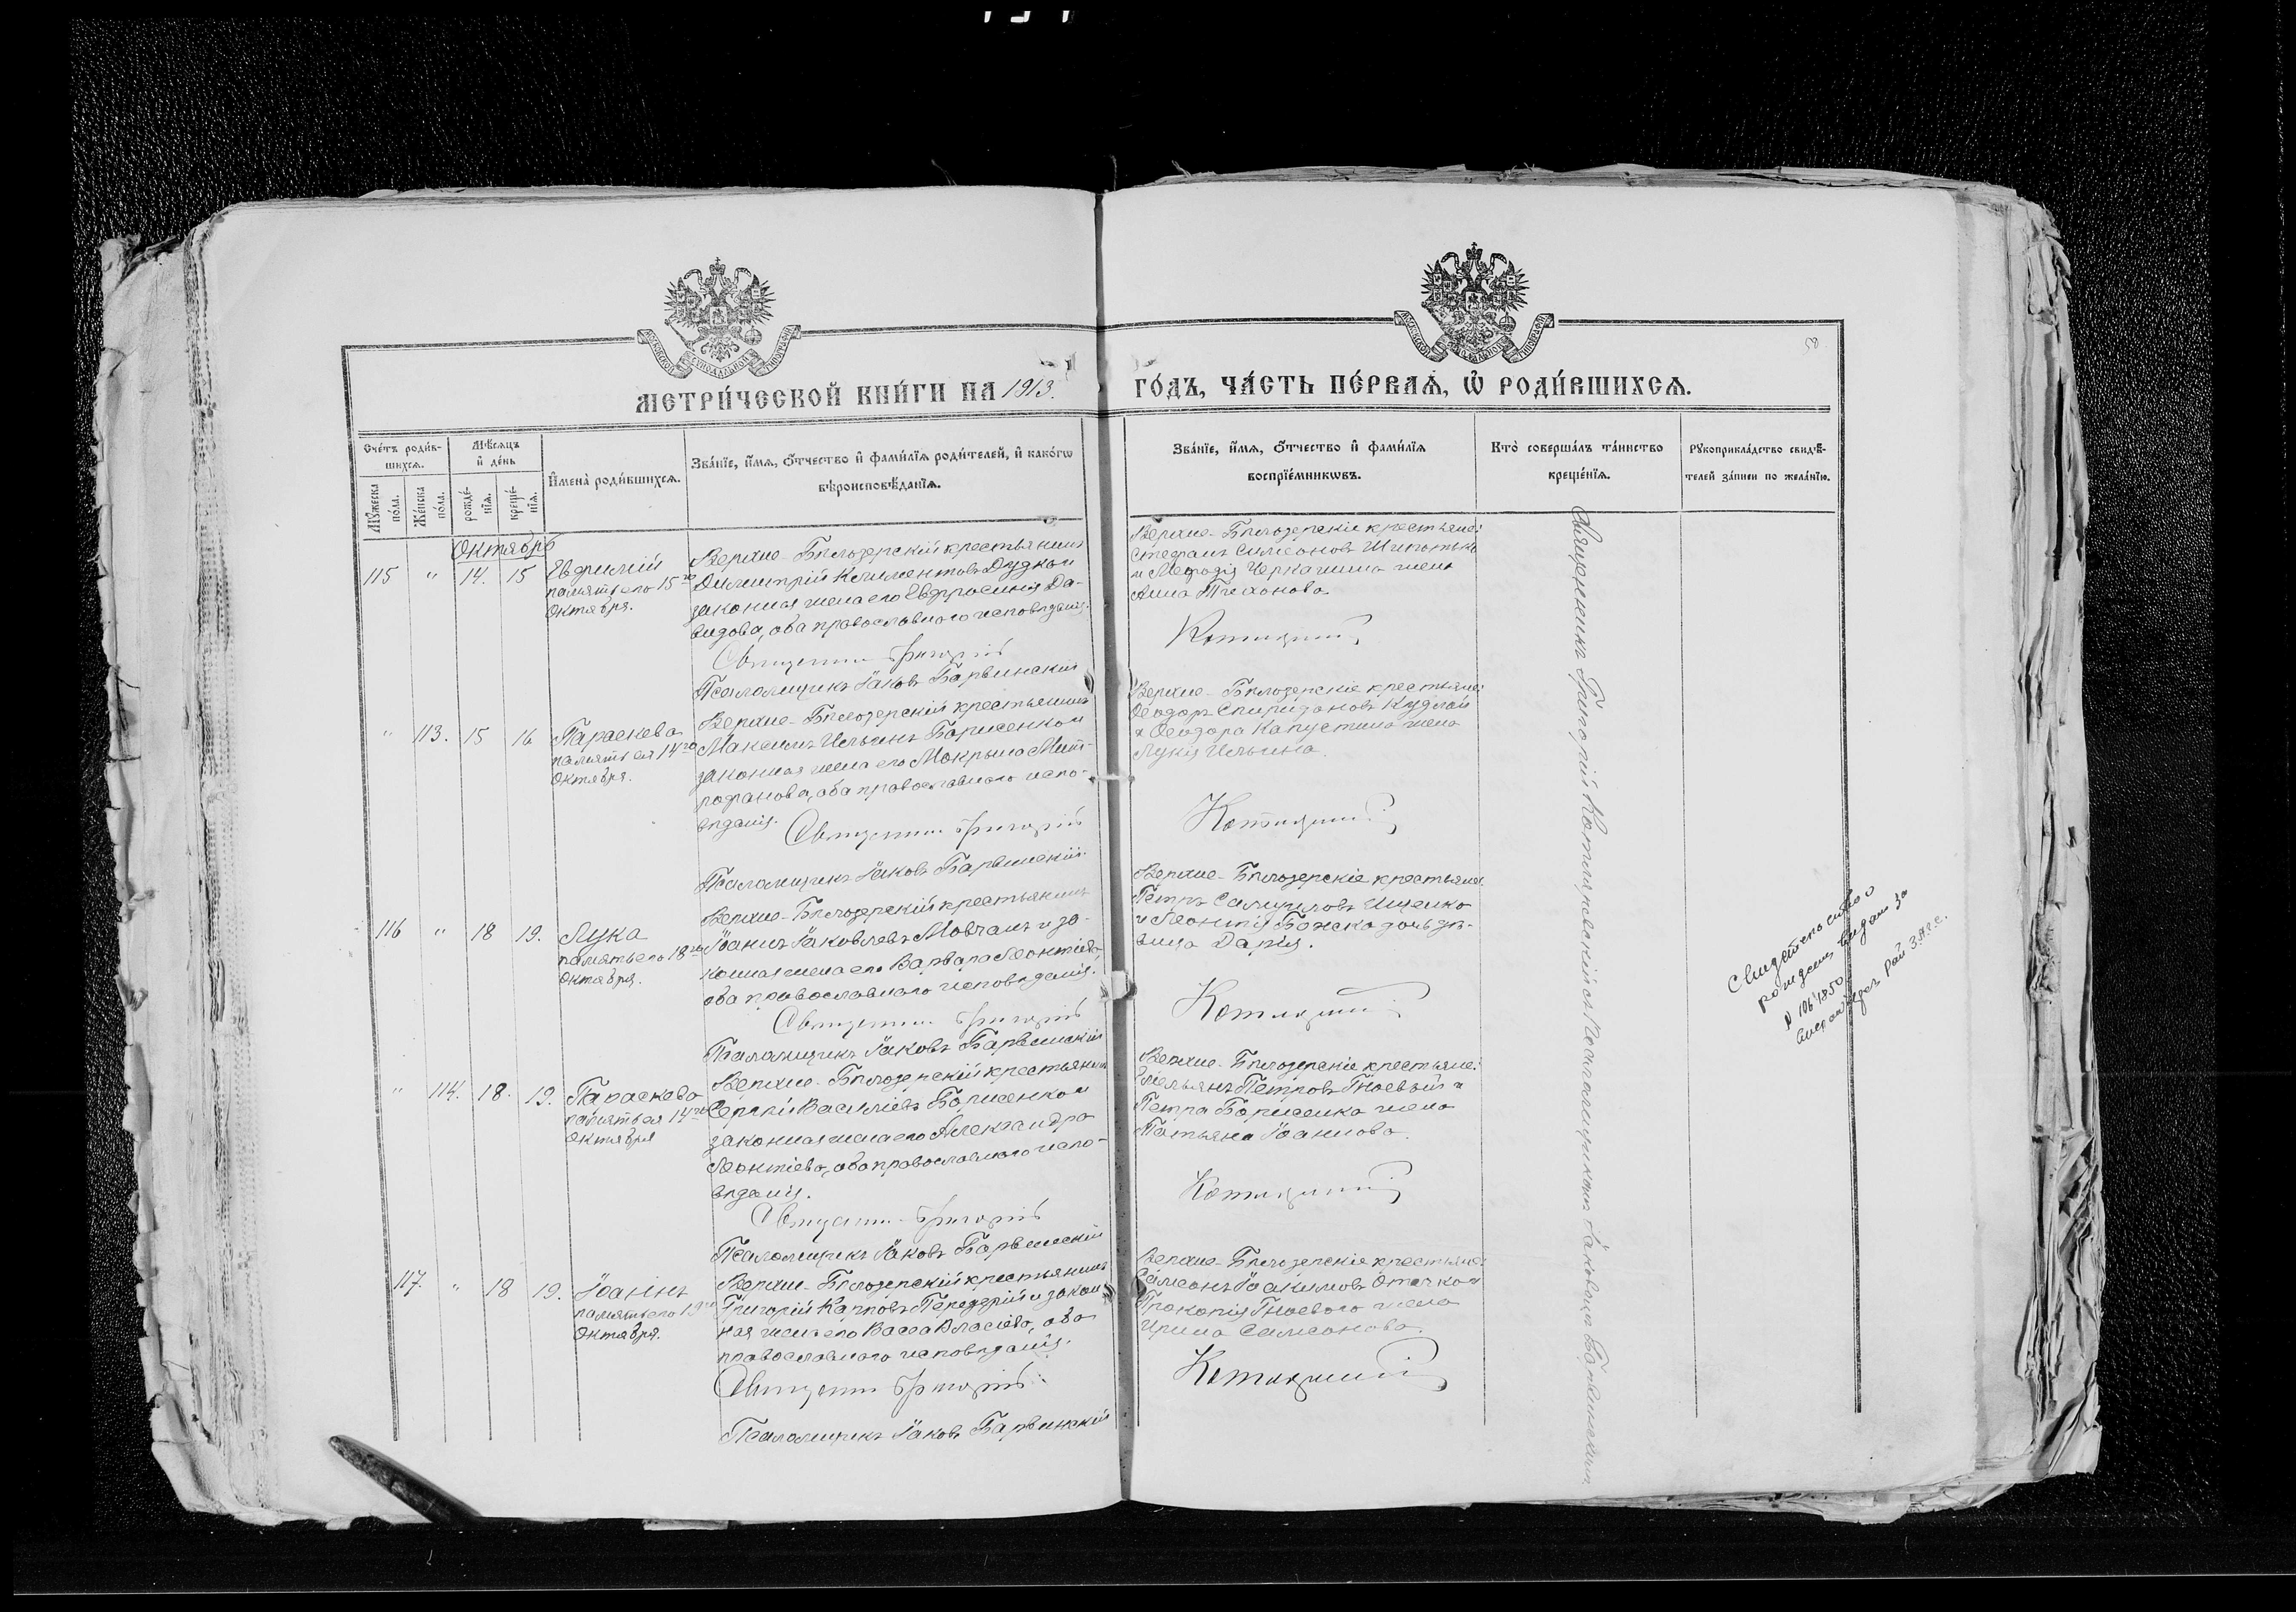 МЕТРИ́ЧЕСКОЙ КНИ́ГИ НА 1913.
ГО́ДЪ, ЧА́СТЬ ПЕ́РВАѦ, Ѡ҆ РОДИ́ВШИХСѦ.
58
Сче́тъ роди́в-
шихсѧ.
Мꙋ́жеска по́ла.
Же́нска по́ла.
Мѣ́сѧцъ
и҆ де́нь
рожде́-
нїѧ.
креще́-
нїѧ.
И҆мена̀ роди́вшихсѧ.
Зва́нїе, и҆́мѧ, ѻ҆́тчество и҆ фами́лїѧ роди́телей, и҆ како́гѡ
вѣроисповѣ́данїѧ.
Зва́нїе, и҆́мѧ, ѻ҆́тчество и҆ фами́лїѧ
воспрїе́мникѡвъ.
Кто̀ соверша́лъ та́инство
креще́нїѧ.
Рꙋкоприкла́дство свидѣ́-
телей за́писи по жела́нїю.
Октябрь
115 " 14. 15
Евфимій
память его 15го
Октября.
Верхне-Бѣлозерскій крестьянинъ
Димитрій Климентовъ Дудка и
законная жена его Евфросинія Да-
видова, оба православнаго исповѣданія.
Священникъ Григорій
Псаломщикъ Іаковъ Барвинскій
Верхне-Бѣлозерскіе крестьяне:
Стефанъ Симеоновъ Шипотько
и Меѳодія Черкашина жена
Анна Тихонова.
Котляревскій
" 113. 15 16
Параскева
память ея 14го
Октября.
Верхне-Бѣлозерскій крестьянинъ
Максимъ Ильинъ Борисенко и
законная жена его Мокрына Мит-
рофанова, оба православнаго испо-
вѣданія.
Священникъ Григорій
Псаломщикъ Іаковъ Барвинскій
Верхне-Бѣлозерскіе крестьяне:
Ѳеодоръ Спиридоновъ Кудлай
и Ѳеодора Капустина жена
Лукія Ильина.
Котляревскій
116 " 18 19.
Лука
память его 18го
Октября.
Верхне-Бѣлозерскій крестьянинъ
Іоаннъ Іаковлевъ Мовчанъ и за-
конная жена его Варвара Леонтіева,
оба православнаго исповѣданія.
Священникъ Григорій
Псаломщикъ Іаковъ Барвинскій
Верхне-Бѣлозерскіе крестьяне:
Петръ Самуиловъ Ищенко
и Леонтія Божка дочь дѣ-
вица Дарія.
Котляревскій
" 114. 18. 19.
Параскева
память ея 14го
Октября
Верхне-Бѣлозерскій крестьянинъ
Сергій Василіевъ Борисенко и
законная жена его Александра
Леонтіева, оба православнаго испо-
вѣданія.
Священникъ Григорій
Псаломщикъ Іаковъ Барвинскій
Верхне-Бѣлозерскіе крестьяне:
Емельянъ Петровъ Гноевый и
Петра Борисенка жена
Татьяна Іоаннова.
Котляревскій
117. " 18 19.
Іоаннъ
память его 19го
Октября.
Верхне-Бѣлозерскій крестьянинъ
Григорій Карповъ Передерій и закон-
ная жена его Васса Власіева, оба
православнаго исповѣданія.
Священникъ Григорій
Псаломщикъ Іаковъ Барвинскій
Верхне-Бѣлозерскіе крестьяне:
Симеонъ Іоакимовъ и
Прокопія Гноевого жена
Ирина Симеонова.
Котляревскій
Священникъ Григорій Котляревскій съ Псаломщикомъ Іаковомъ Барвинскимъ
рождения видано за
N 106/1850
Рай З.А.Г.С.